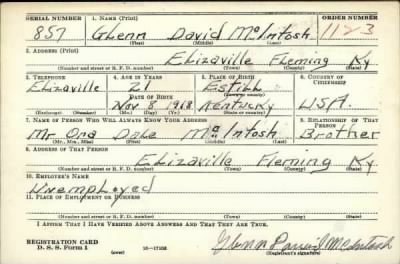 SERIAL NUMBER 1. NAME (Print) ORDER NUMBER
857 Glenn David McIntosh 1123
(First) (Middle) (Last)
2. ADDRESS (Print)
Elizaville Fleming Ky
(Number and street or R. F. D. number) (Town) (County) (State)
3. TELEPHONE 4. AGE IN YEARS 5. PLACE OF BIRTH 6. COUNTRY OF CITIZENSHIP
Elizaville 21 Estill
DATE OF BIRTH (Town or county)
Nov 8 1918 Kentucky USA.
(Exchange) (Number) (Mo.) (Day) (Yr.) (State or country)
7. NAME OF PERSON WHO WILL ALWAYS KNOW YOUR ADDRESS 8. RELATIONSHIP OF THAT PERSON
Mr Ora Dale McIntosh Brother
(Mr., Mrs., Miss) (First) (Middle) (Last)
9. ADDRESS OF THAT PERSON
Elizaville Fleming Ky
(Number and street or R. F. D. number) (Town) (County) (State)
10. EMPLOYER'S NAME
Unemployed
11. PLACE OF EMPLOYMENT OR BUSINESS
(Number and street or R. F. D. number) (Town) (County) (State)
I AFFIRM THAT I HAVE VERIFIED ABOVE ANSWERS AND THAT THEY ARE TRUE.
REGISTRATION CARD
D. S. S. Form 1 (over) Glenn David McIntosh
(Registrant's signature)